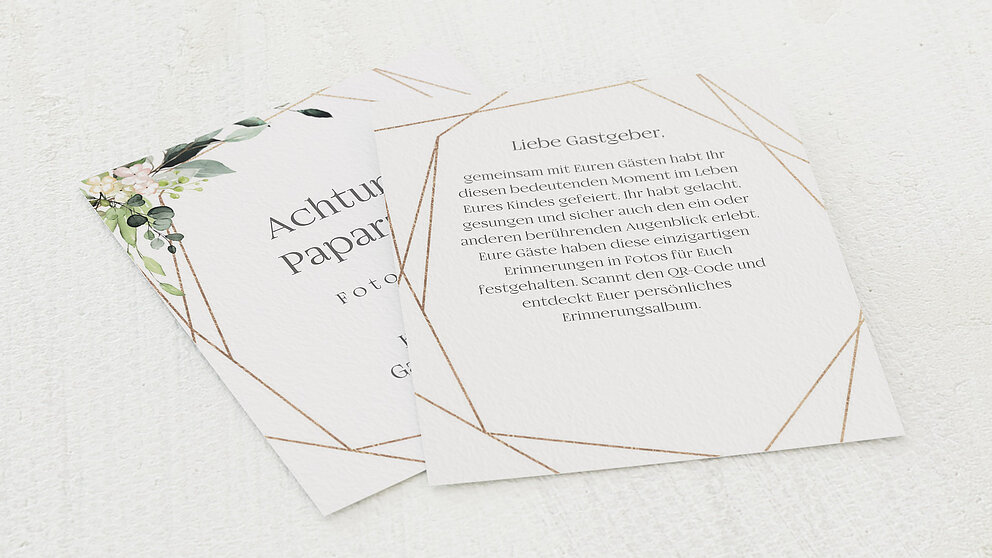 Achtu
Papar
Foto
Liebe Gastgeber,
gemeinsam mit Euren Gästen habt Ihr
diesen bedeutenden Moment im Leben
Eures Kindes gefeiert. Ihr habt gelacht,
gesungen und sicher auch den ein oder
anderen berührenden Augenblick erlebt.
Eure Gäste haben diese einzigartigen
Erinnerungen in Fotos für Euch
festgehalten. Scannt den QR-Code und
entdeckt Euer persönliches
Erinnerungsalbum.